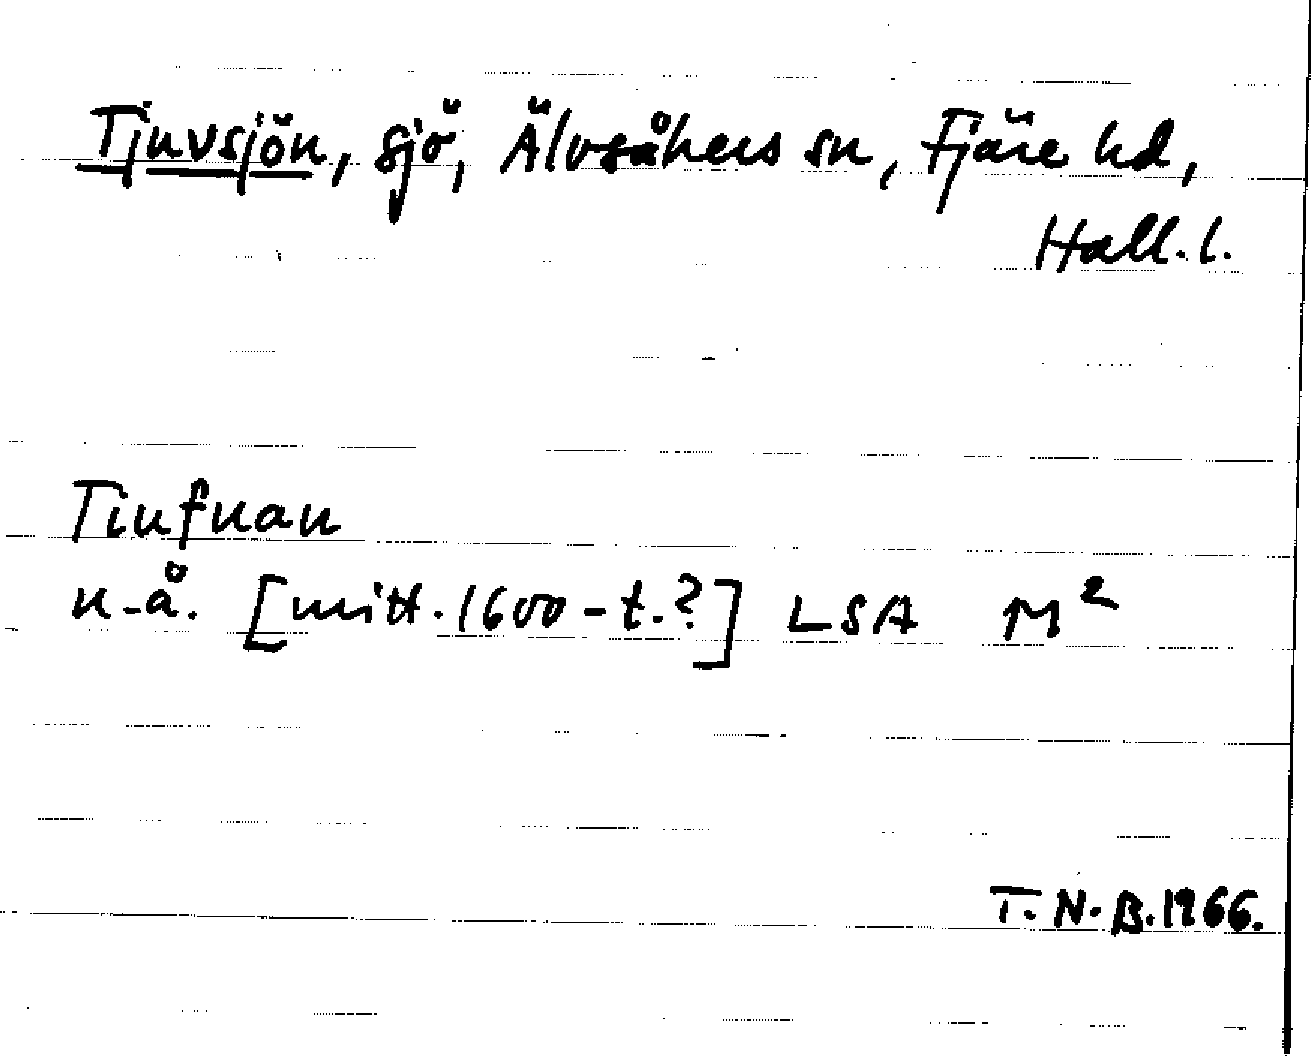 Tjuvsjön, sjö, Älvsåkers sn, Fjäre hd,
Hall. l.
Tiufnan
u.å. [mitt. 1600-t.?] LSA M²
T.N.B. 1966.